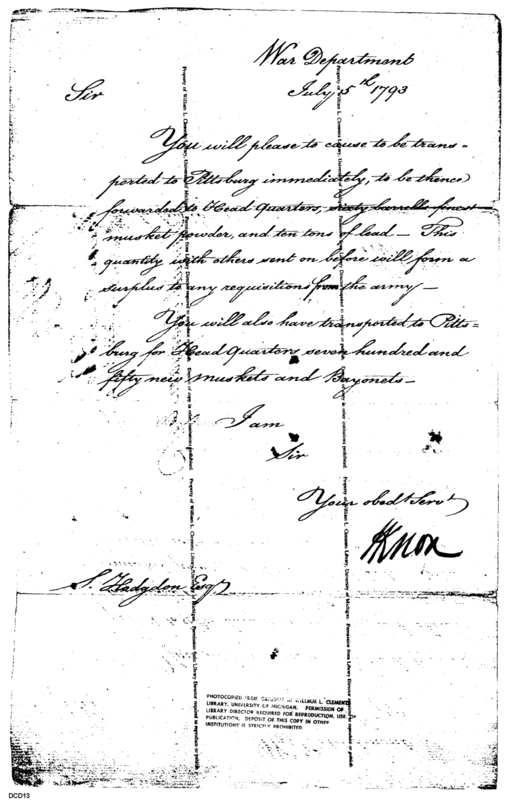 War Department
July 5th 1793
Sir
You will please to cause to be trans=
ported to Pittsburg immediately, to be thence
forwarded to Head Quarters, sixty barrells finest
musket powder, and ten tons of lead — This
quantity with others sent on before will form a
surplus to any requisitions from the army —
You will also have transported to Pitts=
burg for Head Quarters seven hundred and
fifty new muskets and Bayonets —
I am
Sir
Your obedt Servt
HKnox
S. Hodgdon Esqr
PHOTOCOPIED FROM ORIGINAL IN WILLIAM L. CLEMENTS
LIBRARY, UNIVERSITY OF MICHIGAN. PERMISSION OF
LIBRARY DIRECTOR REQUIRED FOR REPRODUCTION, USE, OR
PUBLICATION. DEPOSIT OF THIS COPY IN OTHER
INSTITUTIONS IS STRICTLY PROHIBITED.
DCD13